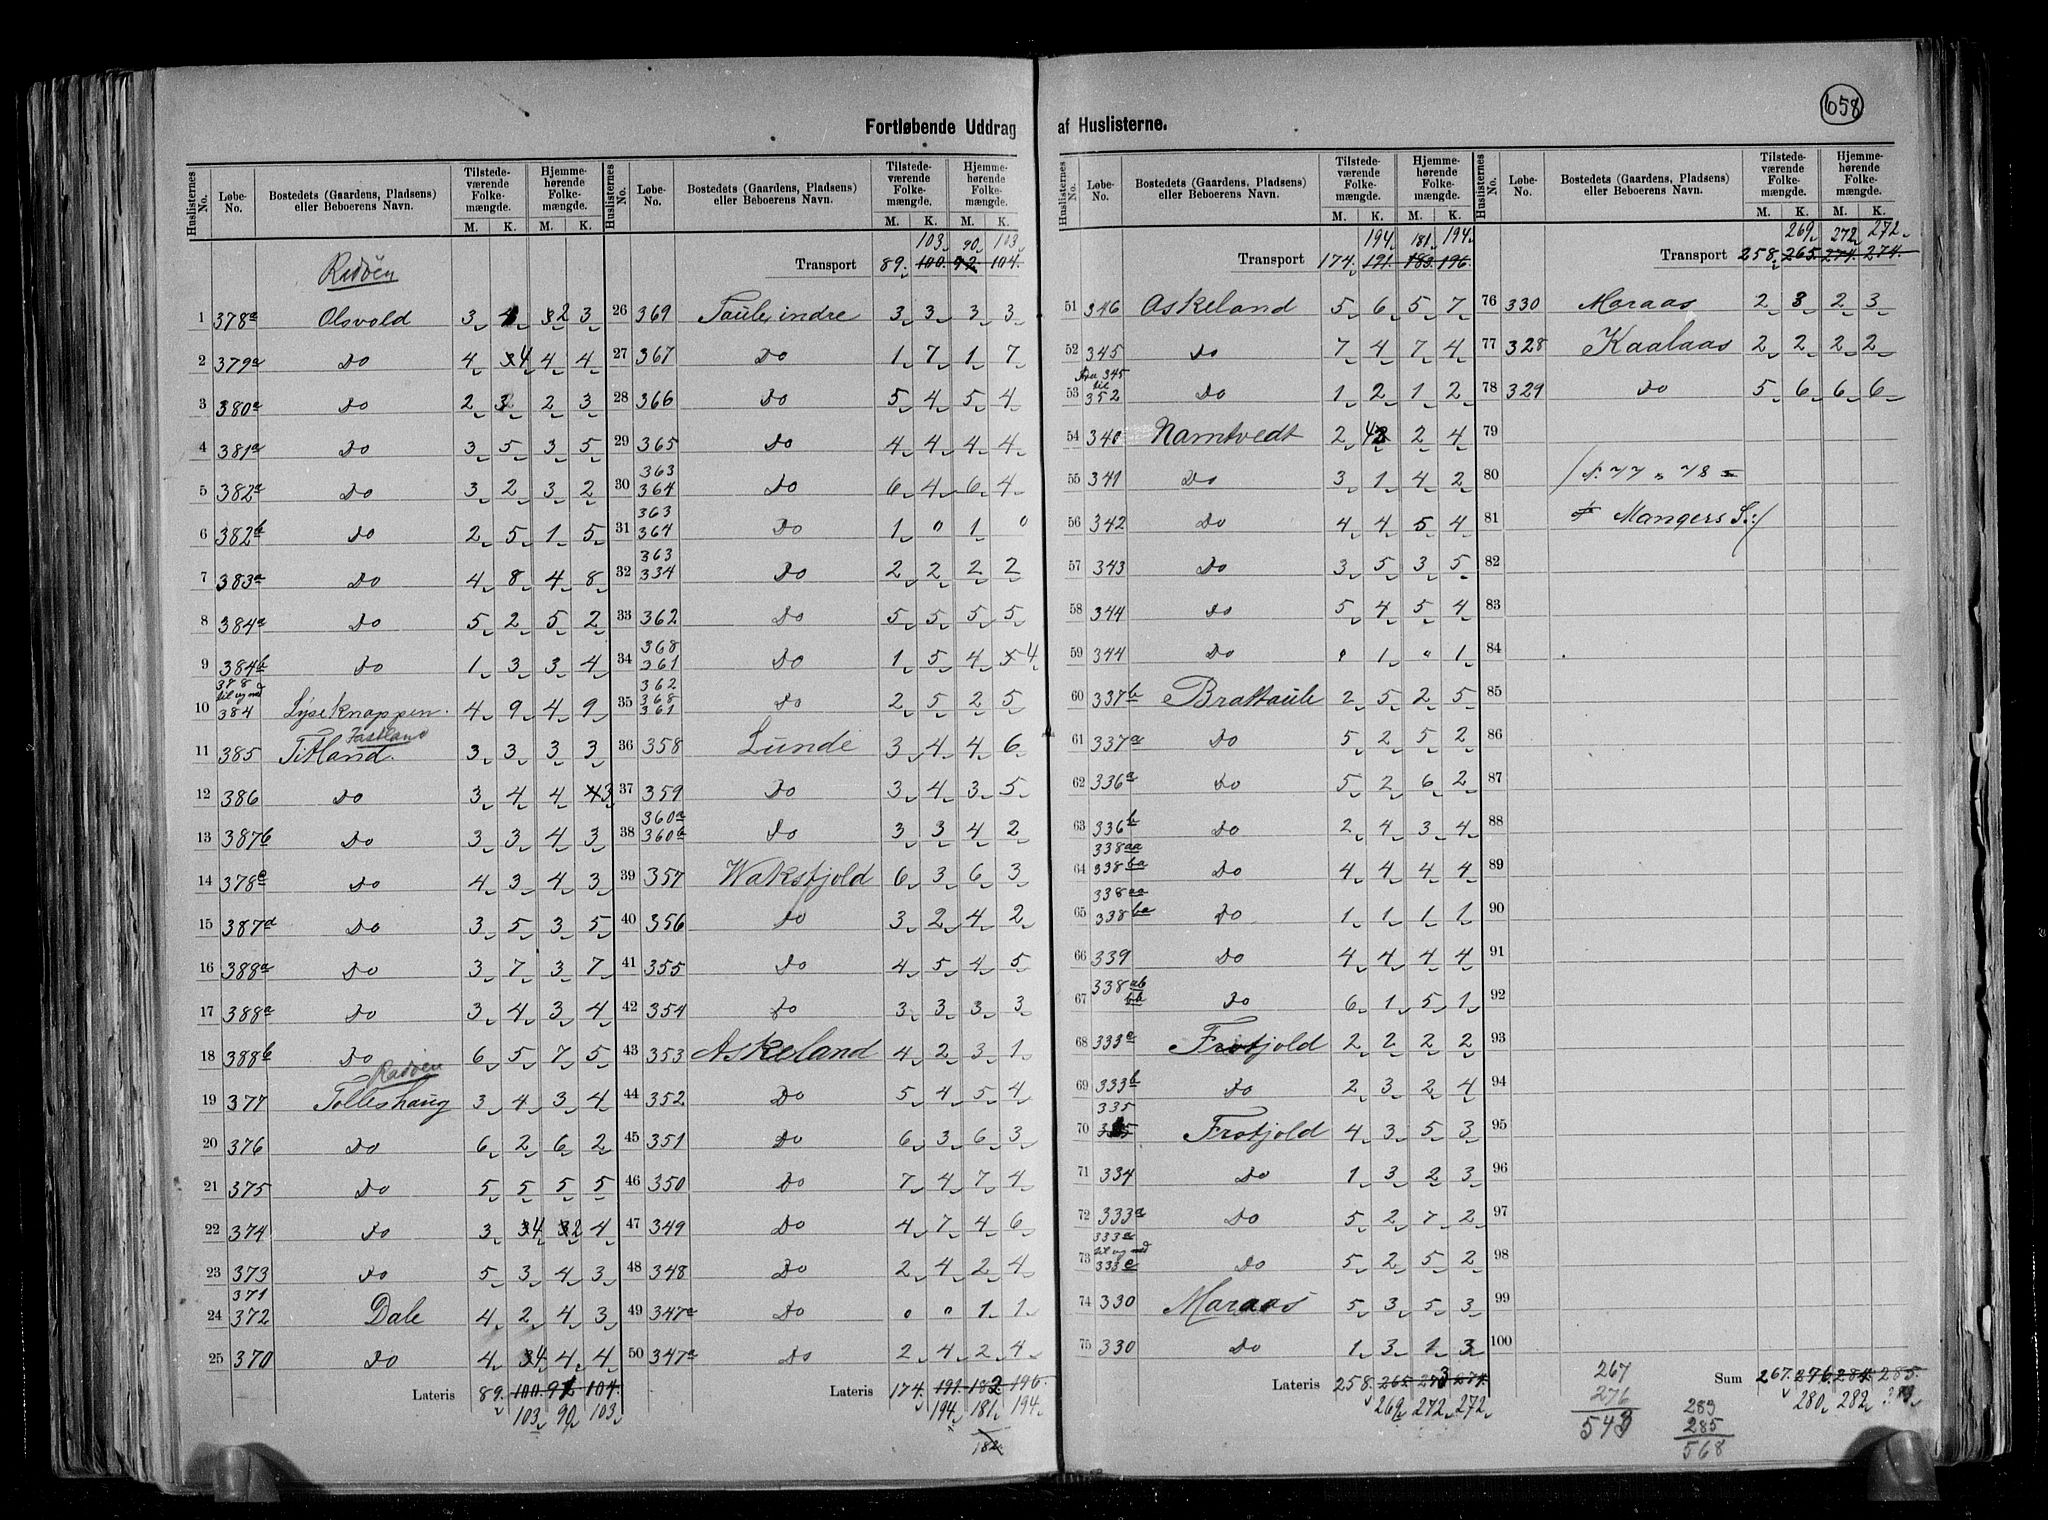 658
Fortløbende Uddrag af Huslisterne.
Huslisternes No. | Løbe-No. | Bostedets (Gaardens, Pladsens) eller Beboerens Navn. | Tilstedeværende Folkemængde. M. K. | Hjemmehørende Folkemængde. M. K.
Radöen
1 378a Olsvold 3 4 2 3
2 379a Do 4 4 4 4
3 380a Do 2 3 2 3
4 381a Do 3 5 3 5
5 382a Do 3 2 3 2
6 382b Do 2 5 1 5
7 383a Do 4 8 4 8
8 384a Do 5 2 5 2
9 384b Do 1 3 3 4
10 378a til og med 384 Lyseknappen 4 9 4 9
Fastland
11 385 Titland 3 3 3 3
12 386 Do 3 4 4 3
13 387b Do 3 3 4 3
14 378e Do 4 3 4 3
15 387d Do 3 5 3 5
16 388a Do 3 7 3 7
17 388a Do 3 4 3 4
18 388b Do 6 5 7 5
Radöen
19 377 Tolleshaug 3 4 3 4
20 376 Do 6 2 6 2
21 375 Do 5 5 5 5
22 374 Do 3 4 2 4
23 373 Do 5 3 4 3
24 371 372 Dale 4 2 4 3
25 370 Do 4 4 4 4
Lateris 89. 100. 92 104.
103 90 103
103 90 103
Transport 89. 100. 92. 104.
26 369 Soule indre 3 3 3 3
27 367 Do 1 7 1 7
28 366 Do 5 4 5 4
29 365 Do 4 4 4 4
30 363 364 Do 6 4 6 4
31 363 364 Do 1 0 1 0
32 363 334 Do 2 2 2 2
33 362 Do 5 5 5 5
34 368 361 Do 1 5 4 4
35 362 368 361 Do 2 5 2 5
36 358 Lunde 3 4 4 6
37 359 Do 3 4 3 5
38 360a 360b Do 3 3 4 2
39 357 Waksfjold 6 3 6 3
40 356 Do 3 2 4 2
41 355 Do 4 5 4 5
42 354 Do 3 3 3 3
43 353 Askeland 4 2 3 1
44 352 Do 5 4 5 4
45 351 Do 6 3 6 3
46 350 Do 7 4 7 4
47 349 Do 4 7 4 6
48 348 Do 2 4 2 4
49 347a Do 0 0 1 1
50 347a Do 2 4 2 4
Lateris 174. 191. 182 196.
194 181 194
182
194 181 194
Transport 174. 191. 183. 196.
51 346 Askeland 5 6 5 7
52 345 Do 7 4 7 4
53 fra 345 til 352 Do 1 2 1 2
54 340 Namtvedt 2 4 2 4
55 341 Do 3 1 4 2
56 342 Do 4 4 5 4
57 343 Do 3 5 3 5
58 344 Do 5 4 5 4
59 344 Do 0 1 0 1
60 337b Brattaule 2 5 2 5
61 337a Do 5 2 5 2
62 336a Do 5 2 6 2
63 336b Do 2 4 3 4
64 338aa 338ba Do 4 4 4 4
65 338aa 338ba Do 1 1 1 1
66 339 Do 4 4 4 4
67 338ab bb Do 6 1 5 1
68 333a Frotjold 2 2 2 2
69 333b Do 2 3 2 4
70 335 Frotjold 4 3 5 3
71 334 Do 1 3 2 3
72 333a Do 5 2 7 2
73 333a til og med 333e Do 5 2 5 2
74 330 Maraas 5 3 5 3
75 330 Do 1 3 1 3
Lateris 258. 265. 273 274.
269 272 272
269 272 272
Transport 258. 265. 274. 274.
76 330 Maraas 2 3 2 3
77 328 Kaalaas 2 2 2 2
78 329 Do 5 6 6 6
79
80 /: N. 77 " 78 =
81 Mangers S.:/
82
83
84
85
86
87
88
89
90
91
92
93
94
95
96
97
98
99
100
Sum 267. 276. 284. 285.
280 282 283
267
276
543
283
285
568